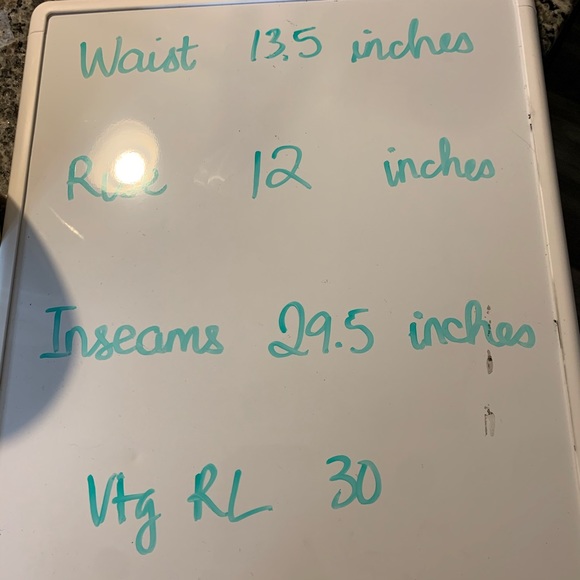 Waist 13.5 inches
Rise 12 inches
Inseams 29.5 inches
Vtg RL 30